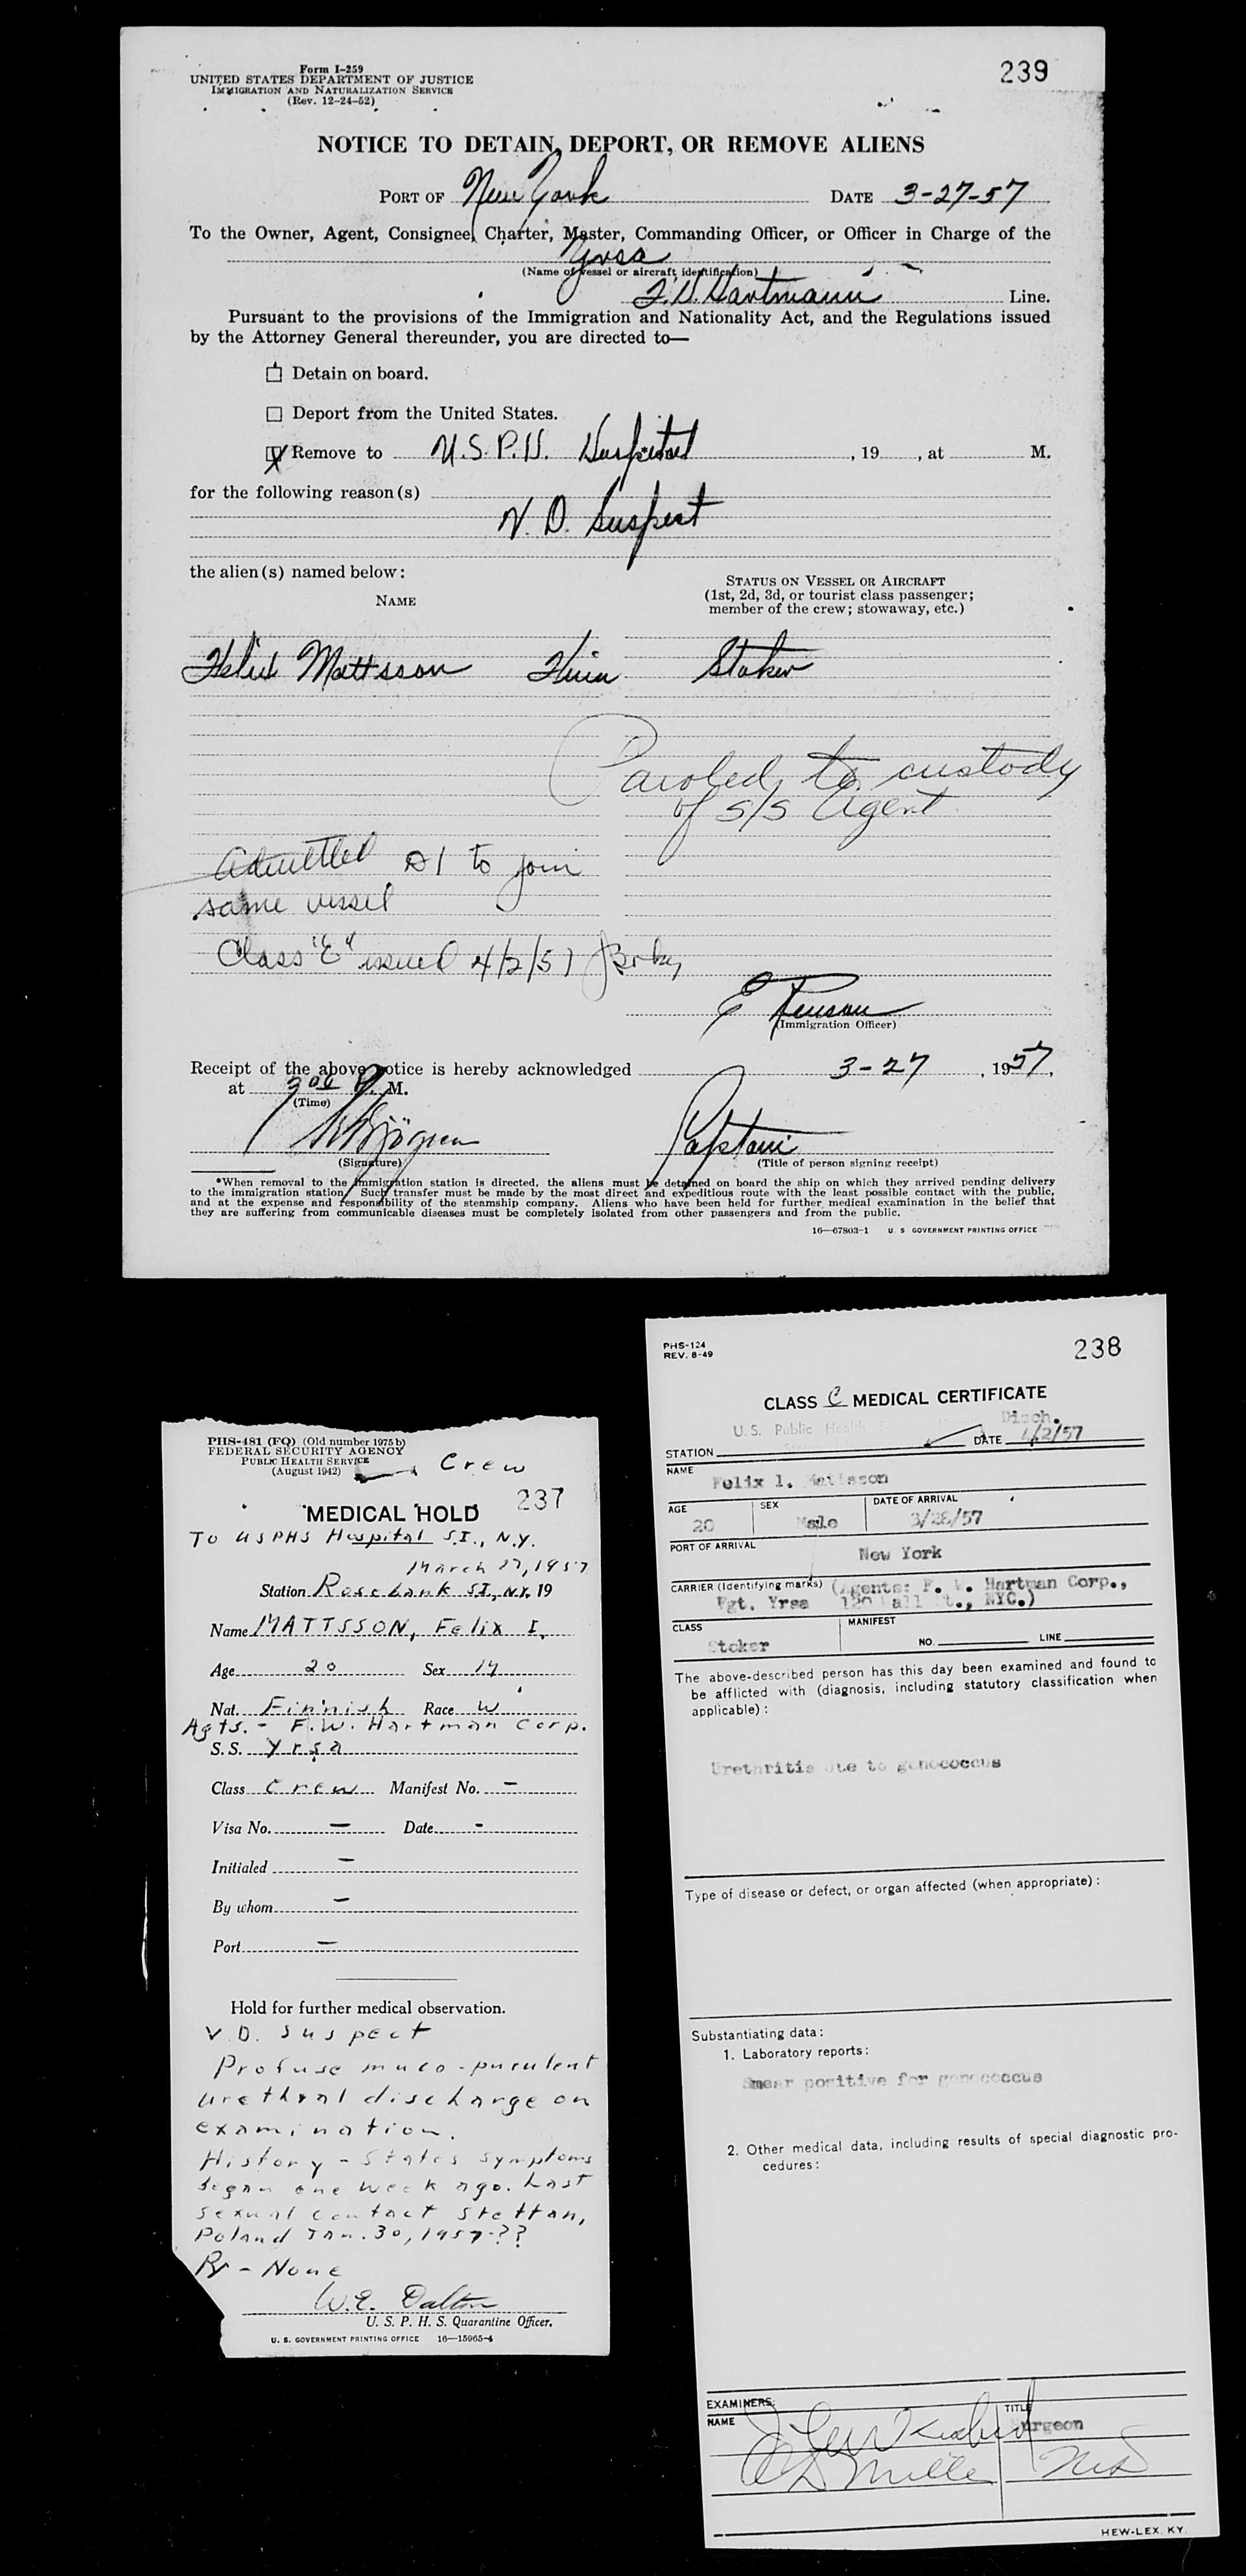 Form I-259
UNITED STATES DEPARTMENT OF JUSTICE
IMMIGRATION AND NATURALIZATION SERVICE
(Rev. 12-24-52)
239
NOTICE TO DETAIN, DEPORT, OR REMOVE ALIENS
PORT OF New York DATE 3-27-57
To the Owner, Agent, Consignee, Charter, Master, Commanding Officer, or Officer in Charge of the
Yrsa
(Name of vessel or aircraft identification)
Hartmann Line.
Pursuant to the provisions of the Immigration and Nationality Act, and the Regulations issued
by the Attorney General thereunder, you are directed to—
Detain on board.
Deport from the United States.
Remove to U.S.P.H. Hospital, 19 , at M.
for the following reason(s)
V. D. Suspect
the alien(s) named below:
STATUS ON VESSEL OR AIRCRAFT
(1st, 2d, 3d, or tourist class passenger;
member of the crew; stowaway, etc.)
NAME
Felix Mattsson Finn Stoker
Paroled to custody
of S/S Agent
Admitted D1 to join
same vessel
Class "C" issued 4/2/57
E
(Immigration Officer)
Receipt of the above notice is hereby acknowledged 3-27, 1957,
at 3 00 P. M.
(Time)
Captain
(Signature) (Title of person signing receipt)
*When removal to the immigration station is directed, the aliens must be detained on board the ship on which they arrived pending delivery
to the immigration station. Such transfer must be made by the most direct and expeditious route with the least possible contact with the public,
and at the expense and responsibility of the steamship company. Aliens who have been held for further medical examination in the belief that
they are suffering from communicable diseases must be completely isolated from other passengers and from the public.
16—67803-1 U. S GOVERNMENT PRINTING OFFICE
PHS-481 (FQ) (Old number 1975b)
FEDERAL SECURITY AGENCY
PUBLIC HEALTH SERVICE
(August 1942)
Crew
237
MEDICAL HOLD
To USPHS Hospital S.I., N.Y.
March 27, 1957
Station Rosebank S.I., N.Y. 19
Name MATTSSON, Felix I.
Age 20 Sex M
Nat. Finnish Race W
Agts. - F.W. Hartman Corp.
S.S. Yrsa
Class Crew Manifest No. -
Visa No. - Date -
Initialed -
By whom -
Port -
Hold for further medical observation.
V.D. Suspect
Profuse muco-purulent
urethral discharge on
examination.
History - States symptoms
began one week ago. Last
sexual contact Stettan,
Poland Jan. 30, 1957-??
Rx - None
W.E. Dalton
U. S. P. H. S. Quarantine Officer.
U. S. GOVERNMENT PRINTING OFFICE 16—15965-4
PHS-124
REV. 8-49
238
CLASS C MEDICAL CERTIFICATE
U.S. Public Health
Disch.
STATION DATE 4/2/57
NAME
Felix I. Mattsson
AGE SEX DATE OF ARRIVAL
20 Male 3/28/57
PORT OF ARRIVAL
New York
CARRIER (Identifying marks) (Agents: F. W. Hartman Corp.,
Fgt. Yrsa 120 Wall St., NYC.)
CLASS MANIFEST
Stoker NO. LINE
The above-described person has this day been examined and found to
be afflicted with (diagnosis, including statutory classification when
applicable):
Urethritis due to gonococcus
Type of disease or defect, or organ affected (when appropriate):
Substantiating data:
1. Laboratory reports:
Smear positive for gonococcus
2. Other medical data, including results of special diagnostic pro-
cedures:
EXAMINERS:
NAME TITLE
Surgeon
MD
HEW-LEX. KY.